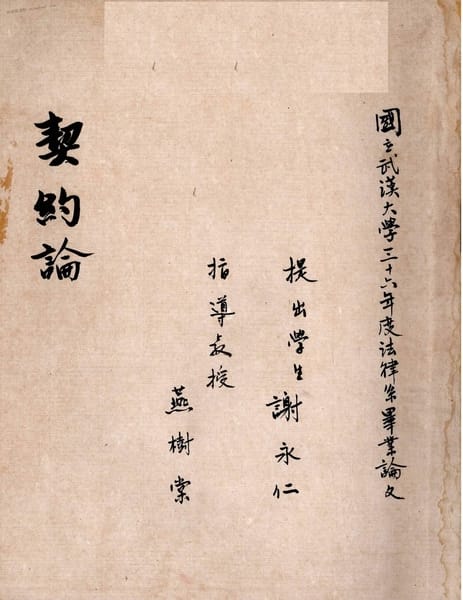 國立武漢大學三十六年度法律系畢業論文
提出學生 謝永仁
指導教授
燕樹棠
契約論